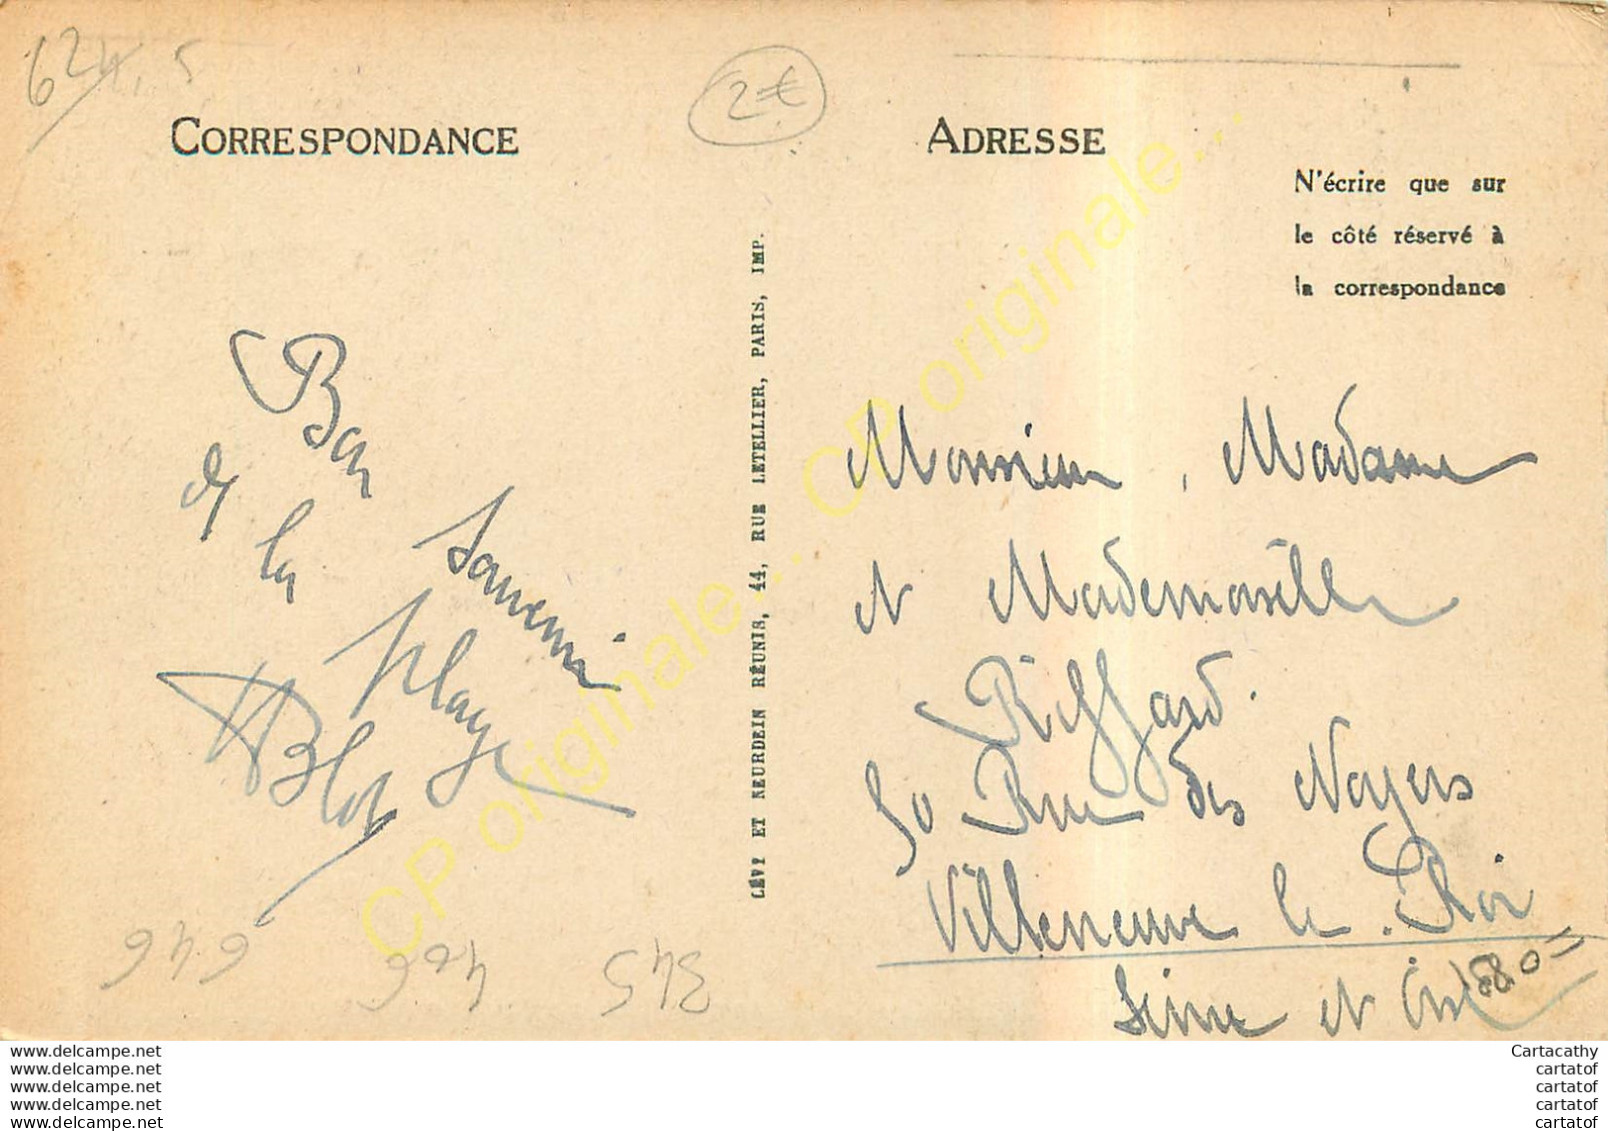 624.5
2€
CORRESPONDANCE
ADRESSE
N'écrire que sur
le côté réservé à
la correspondance
LÉVY ET NEURDEIN RÉUNIS, 44, RUE LETELLIER, PARIS, IMP.
Bon souvenir
de la plage
Blot
Monsieur, Madame
et Mademoiselle
Riffard.
50 Rue des Noyers
Villeneuve le Roi
Seine et Oise
345
406
646
CP originale... CP originale...
www.delcampe.net
www.delcampe.net
www.delcampe.net
www.delcampe.net
www.delcampe.net
Cartacathy
cartatof
cartatof
cartatof
cartatof